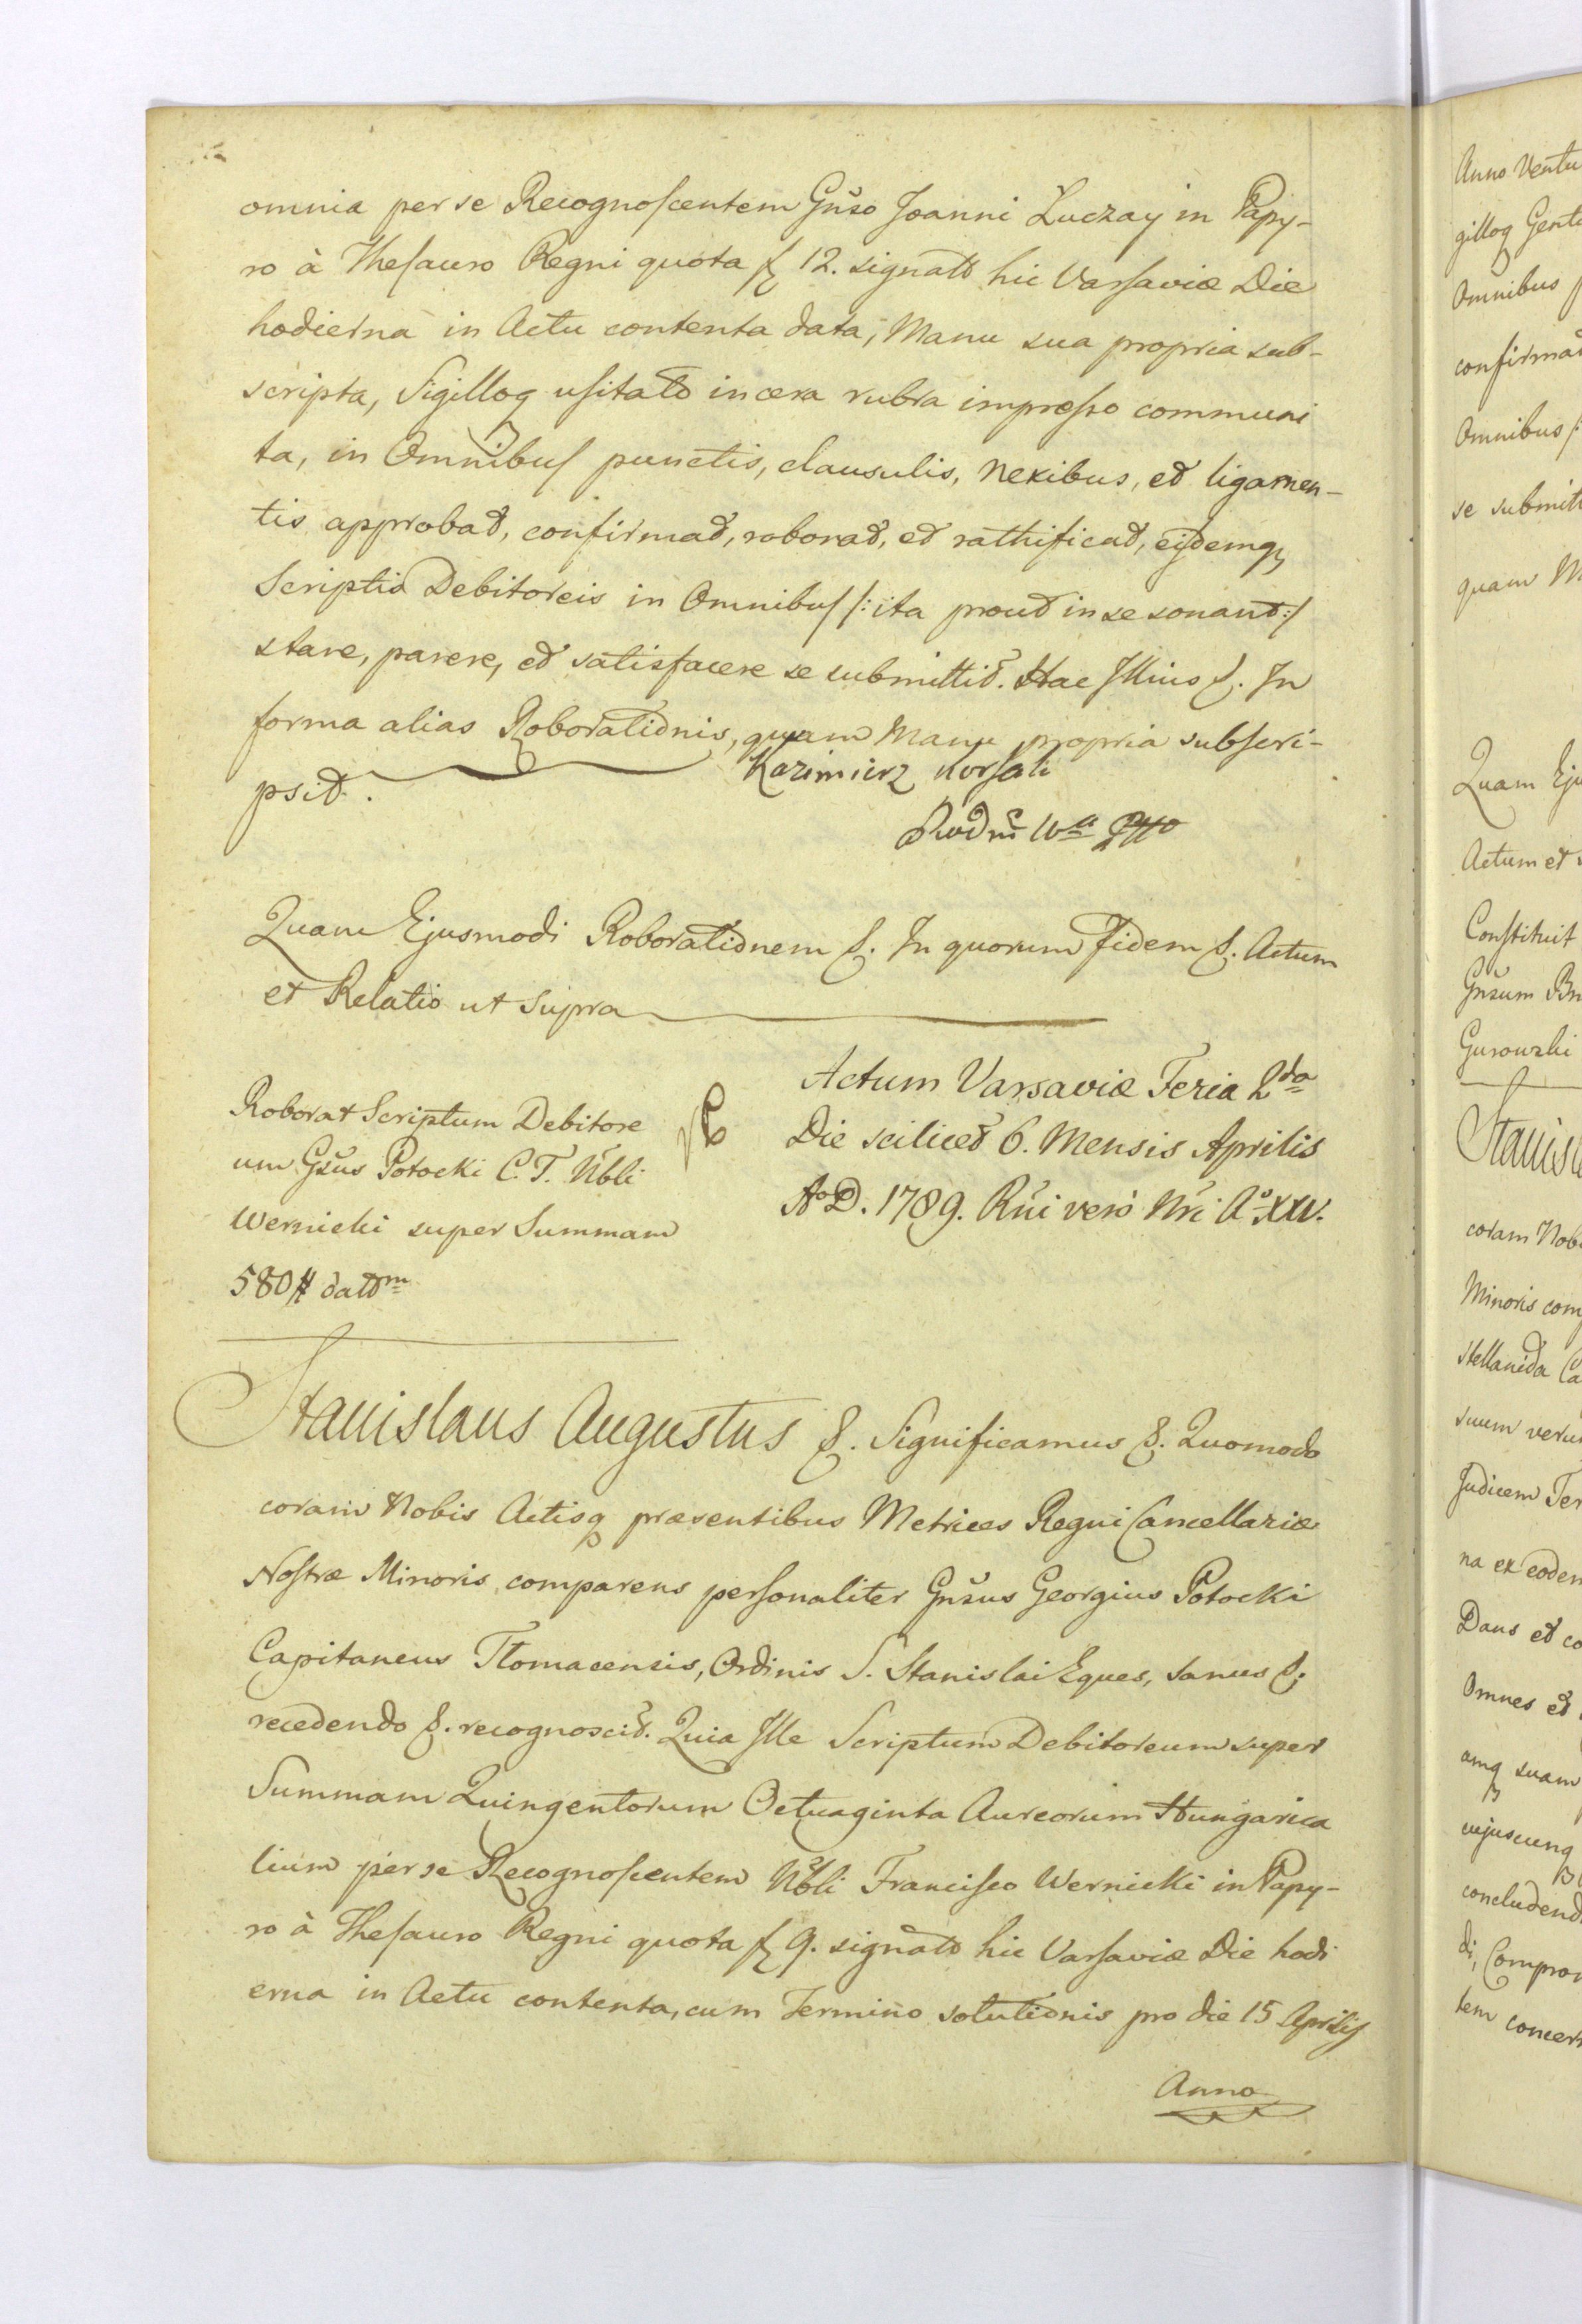 omnia per se Recognoscentem Gnšo Joanni Luczay in Papy-
ro à Thesauro Regni quota fl 12. signato hic Varsaviæ Die
hodierna in Actu contenta data, Manu sua propria sub-
scripta, Sigilloq usitato in cera rubra impresso communi
ta, in Omnibus punctis, clausulis, nexibus, et ligamen-
tis approbat, confirmat, roborat, et rathificat, ejdemq
Scriptis Debitoreis in Omnibus /: ita prout in se sonant :/
stare, parere, et satisfacere se submittit. Hac Illius &. In
forma alias Roborationis, quam Manu propria subscri-
psit. Kazimierz Korsak
Quam Ejusmodi Roborationem &. In quorum Fidem &. Actum
et Relatio ut supra
Roborat Scriptum Debitore
um Gšus Potocki C. T. Nbli
Wernicki super Summam
580 # datm
Actum Varsaviæ Feria 2da
Die scilicet 6. Mensis Aprilis
Ao D. 1789. Rñi vero Nri Ao XXV.
Stanislaus Augustus &. Significamus &. Quomodo
coram Nobis Actisq præsentibus Metrices Regni Cancellariæ
Nostræ Minoris comparens personaliter Gnšus Georgius Potocki
Capitaneus Tłomacensis, Ordinis S. Stanislai Eques, sanus &.
recedendo &. recognoscit. Quia Ille Scriptum Debitoreum super
Summam Quingentorum Octuaginta Aureorum Hungarica
lium per se Recognoscentem Nbli Francisco Wernicki in Papy-
ro à Thesauro Regni quota fl 9. signato hic Varsaviæ Die hodi
erna in Actu contenta, cum Termino solutionis pro die 15 Aprilis
Anno
Anno Ventu
gilloq Genti
Omnibus
confirmat
Omnibus /:
se submitt
quam M
Quam Eju
Actum et
Constituit
Gnšum
Gurowski
Stanisl
coram Nob
Minoris com
stellanida Ca
suum veru
Judicem Ter
na ex eodem
Dans et co
Omnes et
amq suam
cujuscunq
concludend
di, Compro
tem concer